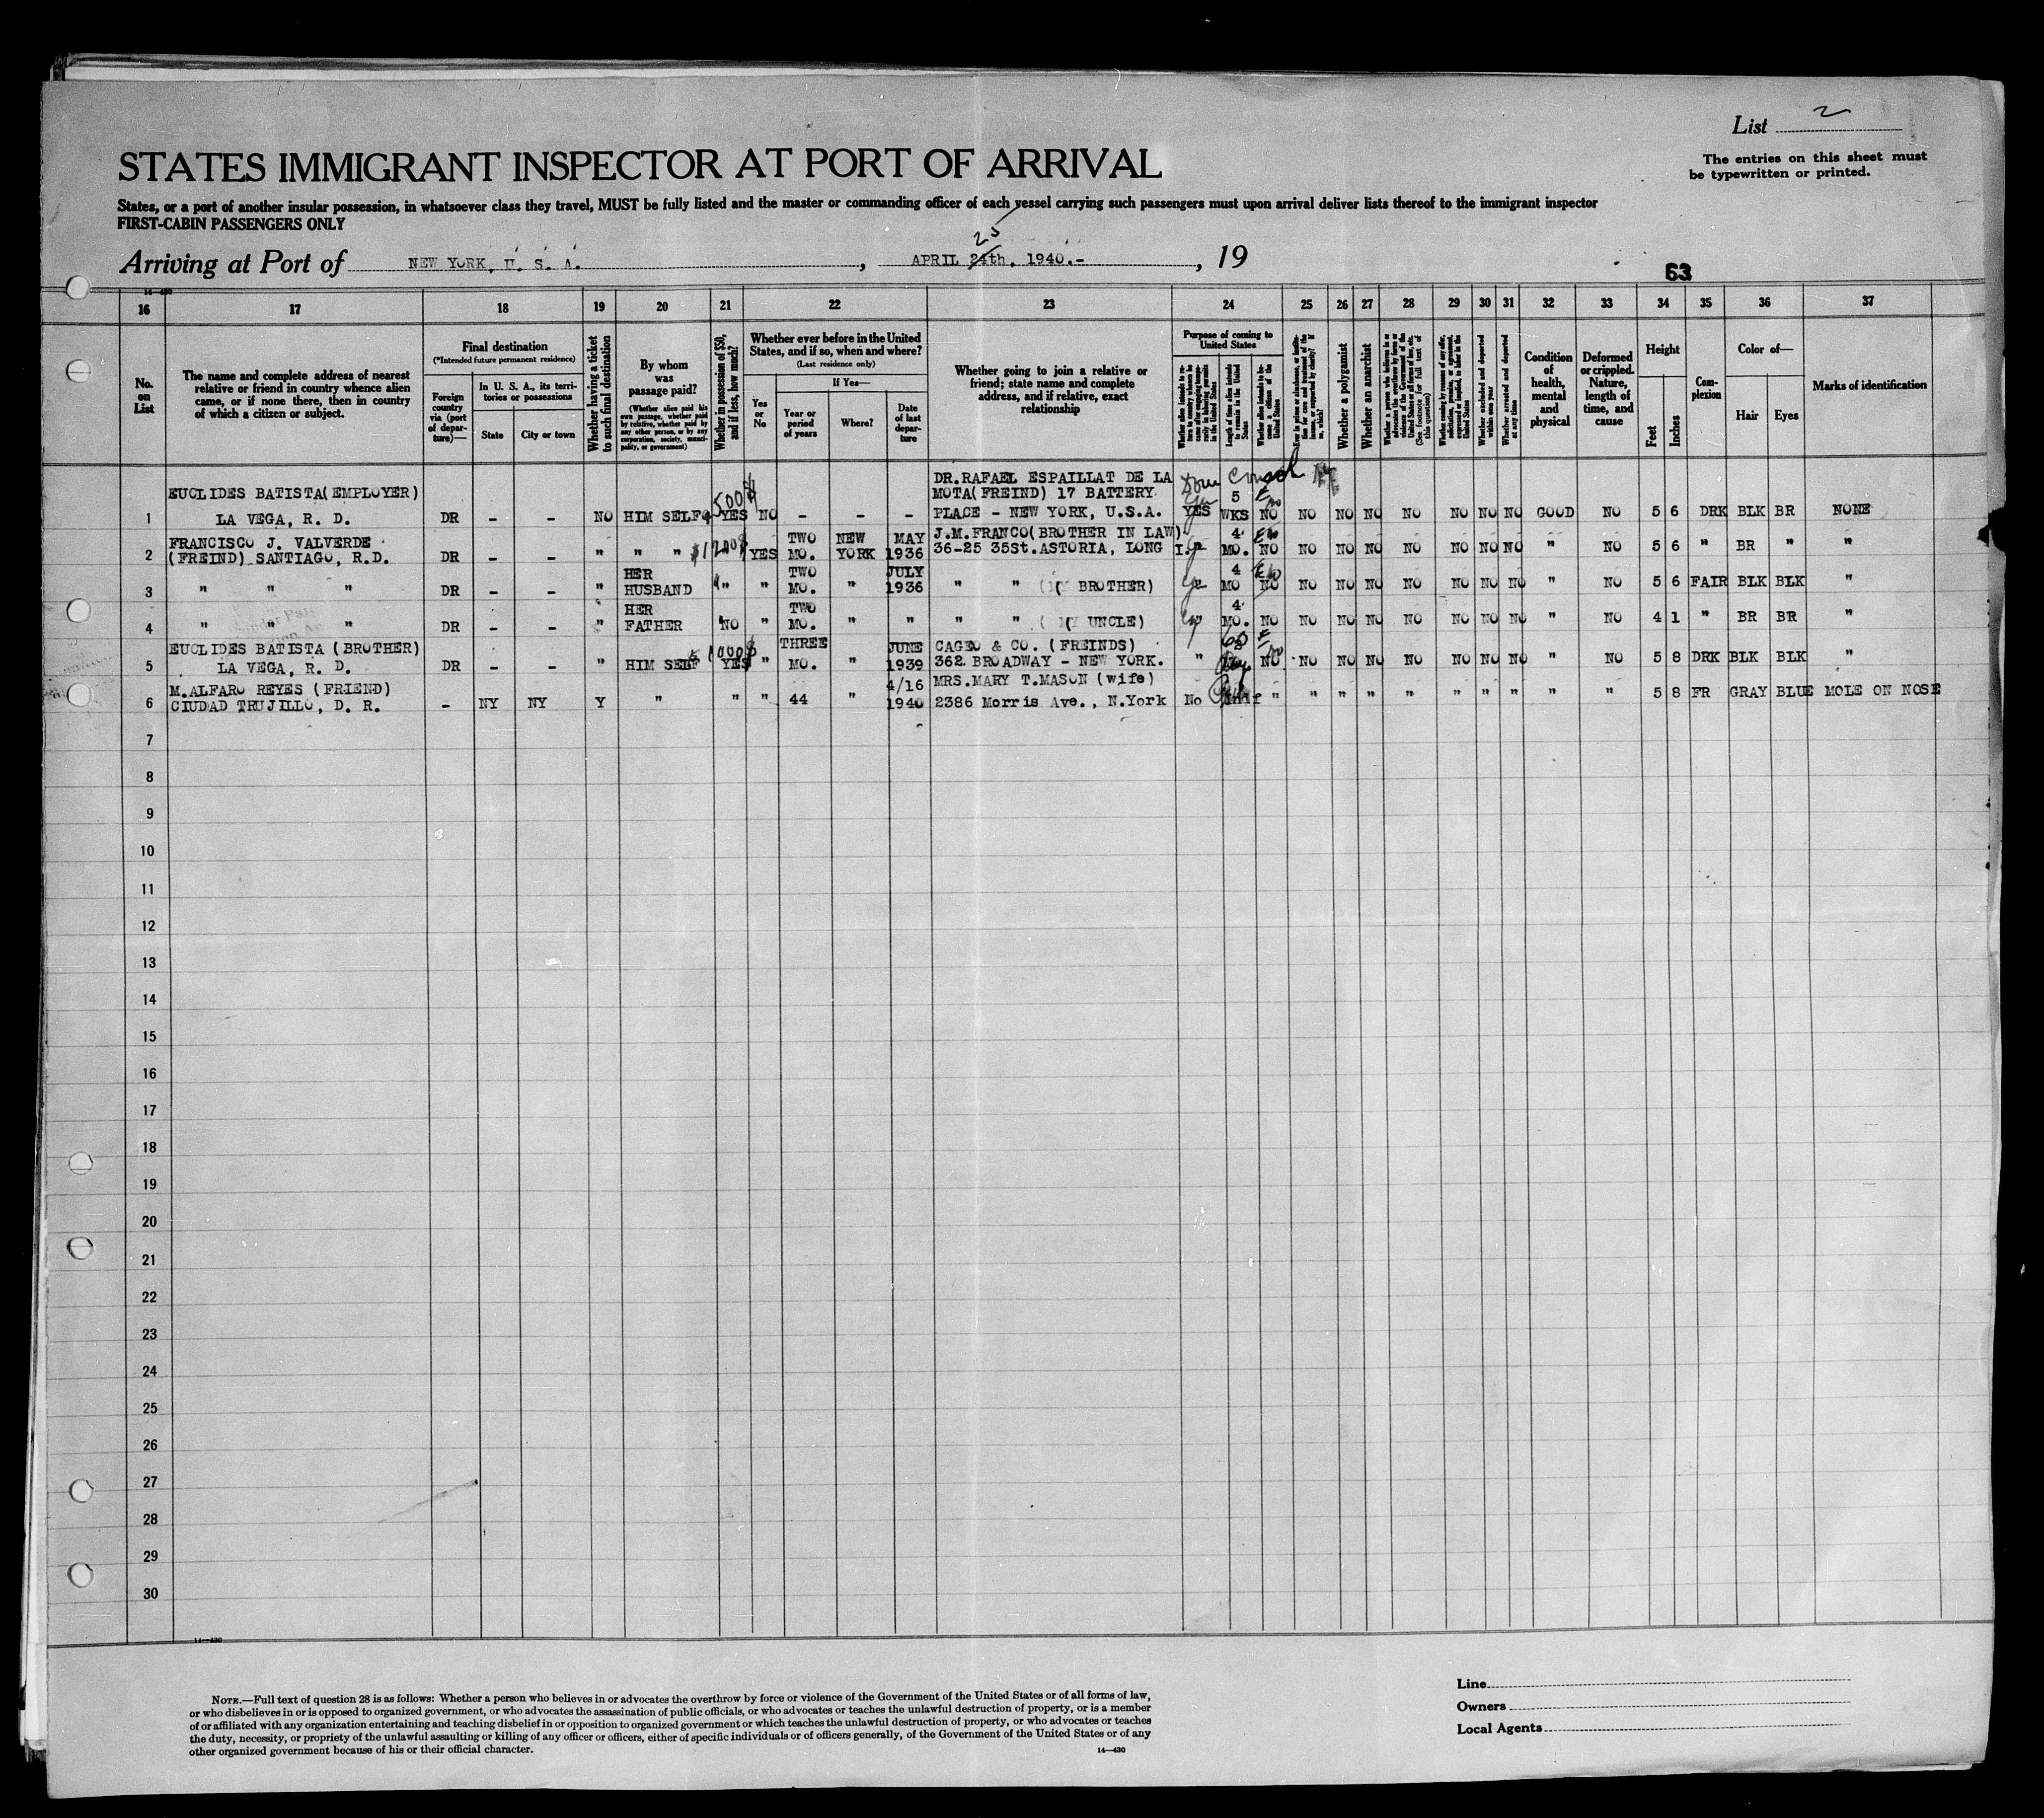 List 2
STATES IMMIGRANT INSPECTOR AT PORT OF ARRIVAL
The entries on this sheet must
be typewritten or printed.
States, or a port of another insular possession, in whatsoever class they travel, MUST be fully listed and the master or commanding officer of each vessel carrying such passengers must upon arrival deliver lists thereof to the immigrant inspector
FIRST-CABIN PASSENGERS ONLY
25
Arriving at Port of NEW YORK, U. S. A. , APRIL 24th, 1940.- , 19
63
14—430
16 17 18 19 20 21 22 23 24 25 26 27 28 29 30 31 32 33 34 35 36 37
No. on List
The name and complete address of nearest
relative or friend in country whence alien
came, or if none there, then in country
of which a citizen or subject.
Final destination
(*Intended future permanent residence)
Foreign country via (port of departure)—
In U. S. A., its territories or possessions
State
City or town
Whether having a ticket to such final destination
By whom was passage paid?
(Whether alien paid his own passage, whether paid by relative, whether paid by any other person, or by any corporation, society, municipality, or government)
Whether in possession of $50, and if less, how much?
Whether ever before in the United
States, and if so, when and where?
(Last residence only)
Yes or No
If Yes—
Year or period of years
Where?
Date of last departure
Whether going to join a relative or
friend; state name and complete
address, and if relative, exact
relationship
Purpose of coming to United States
Length of time alien intends to remain in the United States
Whether alien intends to become a citizen of the United States
Whether a polygamist
Whether an anarchist
(See footnote for full text of this question)
Whether excluded and deported within one year
Whether arrested and deported at any time
Condition of health, mental and physical
Deformed or crippled. Nature, length of time, and cause
Height
Feet
Inches
Complexion
Color of—
Hair
Eyes
Marks of identification
DR.RAFAEL ESPAILLAT DE LA
EUCLIDES BATISTA(EMPLOYER) 500$ MOTA(FREIND) 17 BATTERY 5
1 LA VEGA, R. D. DR - - NO HIM SELF YES NO - - - PLACE - NEW YORK, U.S.A. YES WKS NO NO NO NO NO NO NO NO GOOD NO 5 6 DRK BLK BR NONE
FRANCISCO J. VALVERDE TWO NEW MAY J.M.FRANCO(BROTHER IN LAW) 4
2 (FREIND) SANTIAGO, R.D. DR - - " " " $1200$ YES MO. YORK 1936 36-25 35St.ASTORIA, LONG I. MO. NO NO NO NO NO NO NO NO " NO 5 6 " BR " "
HER TWO JULY 4
3 " " " DR - - " HUSBAND " " MO. " 1936 " " (MY BROTHER) MO NO NO NO NO NO NO NO NO " NO 5 6 FAIR BLK BLK "
HER TWO 4
4 " " " DR - - " FATHER NO " MO. " " " " (MY UNCLE) MO. NO NO NO NO NO NO NO NO " NO 4 1 " BR BR "
EUCLIDES BATISTA (BROTHER) 1000$ THREE JUNE CAGEO & CO. (FREINDS) 60
5 LA VEGA, R. D. DR - - " HIM SELF YES " MO. " 1939 362 BROADWAY - NEW YORK. " NO NO NO NO NO NO NO NO " NO 5 8 DRK BLK BLK "
M.ALFARO REYES (FRIEND) 4/16 MRS.MARY T.MASON (wife)
6 CIUDAD TRUJILLO, D. R. - NY NY Y " " " 44 " 1940 2386 Morris Ave., N.York No Indf " " " " " " " " " " 5 8 FR GRAY BLUE MOLE ON NOSE
7
8
9
10
11
12
13
14
15
16
17
18
19
20
21
22
23
24
25
26
27
28
29
30
14—430
NOTE.—Full text of question 28 is as follows: Whether a person who believes in or advocates the overthrow by force or violence of the Government of the United States or of all forms of law,
or who disbelieves in or is opposed to organized government, or who advocates the assassination of public officials, or who advocates or teaches the unlawful destruction of property, or is a member
of or affiliated with any organization entertaining and teaching disbelief in or opposition to organized government or which teaches the unlawful destruction of property, or who advocates or teaches
the duty, necessity, or propriety of the unlawful assaulting or killing of any officer or officers, either of specific individuals or of officers generally, of the Government of the United States or of any
other organized government because of his or their official character.
14—430
Line
Owners
Local Agents